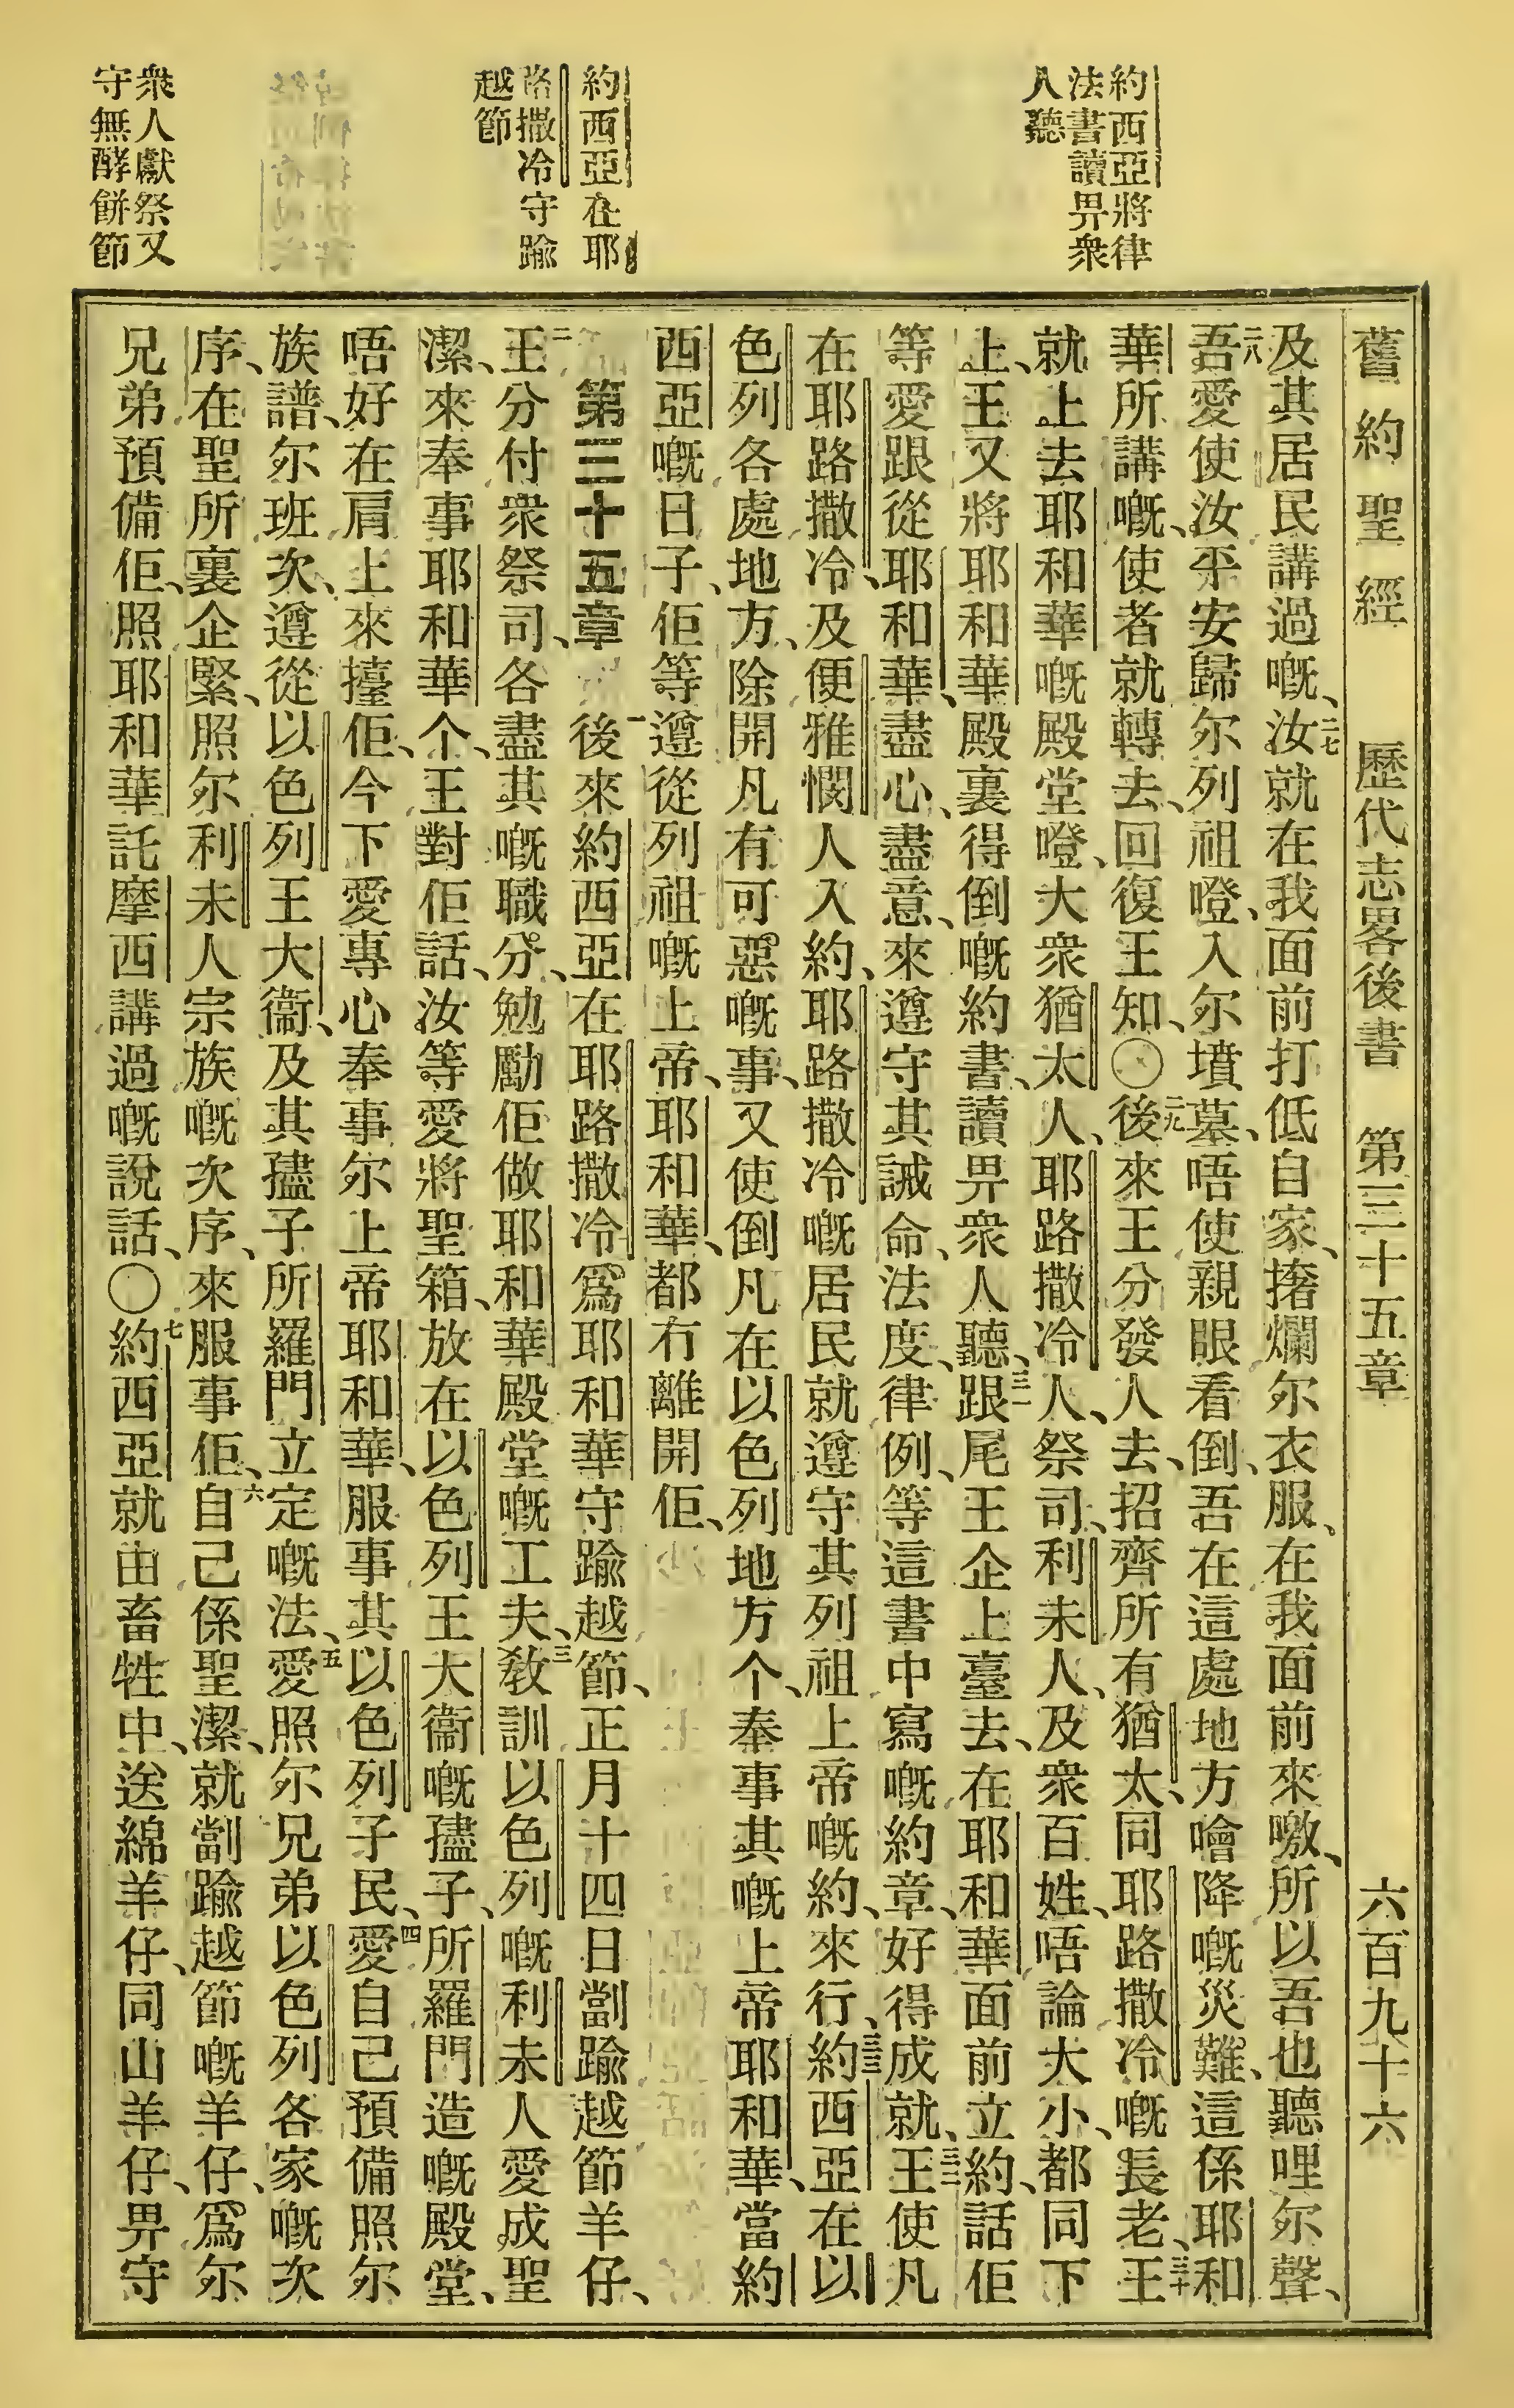 約西亞將律
法書讀畀衆
人聽
約西亞在耶
路撒冷守踰
越節
衆人獻祭又
守無酵餅節
舊約聖經　歷代志畧後書　第三十五章　六百九十六
及其居民講過嘅、二七汝就在我面前打低自家、撦爛尔衣服、在我面前來噭、所以吾也聽哩尔聲、
二八吾愛使汝平安歸尔列祖嶝、入尔墳墓、唔使親眼看倒、吾在這處地方噲降嘅災難、這係耶和
華所講嘅、使者就轉去、回復王知、〇二九後來王分發人去、招齊所有猶太、同耶路撒冷嘅長老、三十王
就上去耶和華嘅殿堂嶝、大衆猶太人、耶路撒冷人、祭司、利未人、及衆百姓、唔論大小、都同下
上、王又將耶和華殿裏得倒嘅約書、讀畀衆人聽、三一跟尾王企上臺去、在耶和華面前立約、話佢
等愛跟從耶和華、盡心、盡意、來遵守其誡命、法度、律例、等這書中寫嘅約章、好得成就、三二王使凡
在耶路撒冷、及便雅憫人入約、耶路撒冷嘅居民就遵守其列祖上帝嘅約、來行、三三約西亞在以
色列各處地方、除開凡有可惡嘅事、又使倒凡在以色列地方个、奉事其嘅上帝耶和華、當約
西亞嘅日子、佢等遵從列祖嘅上帝、耶和華、都冇離開佢、
第三十五章　一後來約西亞在耶路撒冷爲耶和華守踰越節、正月十四日劏踰越節羊仔、
二王分付衆祭司、各盡其嘅職分、勉勵佢做耶和華殿堂嘅工夫、三敎訓以色列嘅利未人愛成聖
潔、來奉事耶和華个、王對佢話、汝等愛將聖箱、放在以色列王大衞嘅孻子、所羅門造嘅殿堂、
唔好在肩上來擡佢、今下愛專心奉事尔上帝耶和華、服事其以色列子民、四愛自己預備照尔
族譜、尔班次、遵從以色列王大衞、及其孻子所羅門立定嘅法、五愛照尔兄弟以色列各家嘅次
序、在聖所裏企緊、照尔利未人宗族嘅次序、來服事佢、六自己係聖潔、就劏踰越節嘅羊仔、爲尔
兄弟預備佢、照耶和華託摩西講過嘅說話、〇七約西亞就由畜牲中、送綿羊仔、同山羊仔、畀守